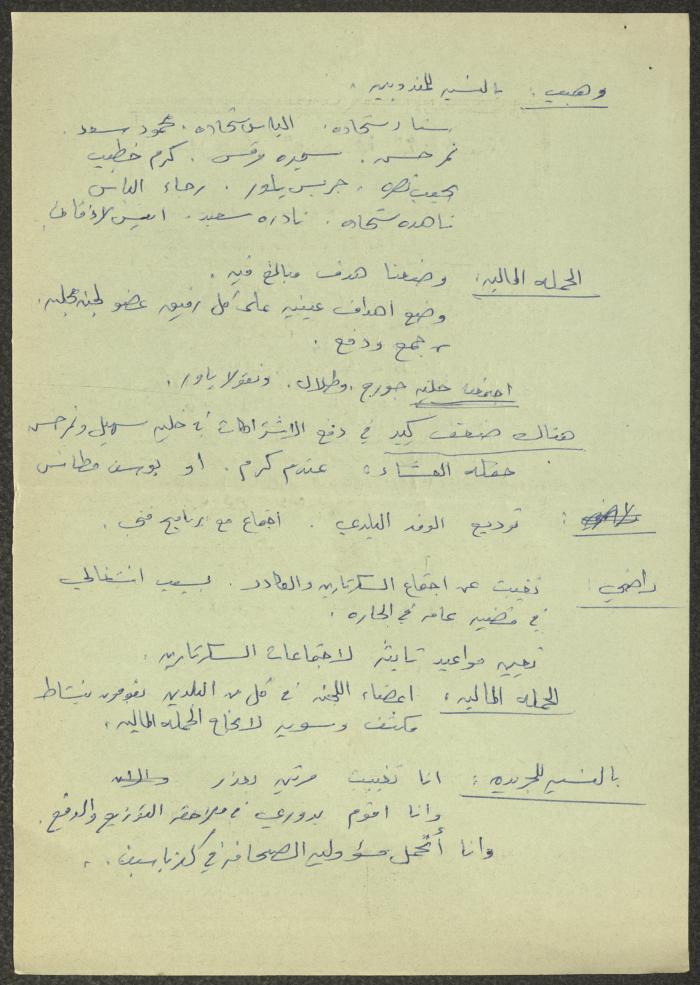 وهبي: بالنسبه للمندوبين.
سناء شحاده. الياس شحاده. محمود سعد.
نمر حسن. سعيده مرقس. كرم خطيب
جريس ياور. رجاء الياس
ناهده شحاده. نادره سعيد. انيس
الحمله الماليه: وضعنا هدف مبالغ فيه.
وضع اهداف عينيه على كل رفيق عضو لجنه محليه.
جمع ودفع.
اجتمعت خليه جورج. وطلال. ونقولا ياور.
هناك ضعف كبير في دفع الاشتراكات في خليه سهيل ونمر حسن
حفله العشاء: عندم كرم. او يوسف مطانس
: توديع الوفد البلدي. اجتماع مع برنامج فني.
راضي: تغيبت عن اجتماع السكرتاريه والكادر. بسبب انشغالي
في قضيه عامه في الحاره.
تعيين مواعيد ثابته لاجتماعات السكرتاريه.
الحمله الماليه: اعضاء اللجنه في كل من البلدين يقومون بنشاط
مكثف وسويه لانجاح الحمله الماليه.
بالنسبه للجريده: انا تغيبت مرتين بعذر
وانا اقوم بدوري في ملاحقه التوزيع والدفع.
وانا أتحمل مسؤوليه الصحافه في كفرياسيف..